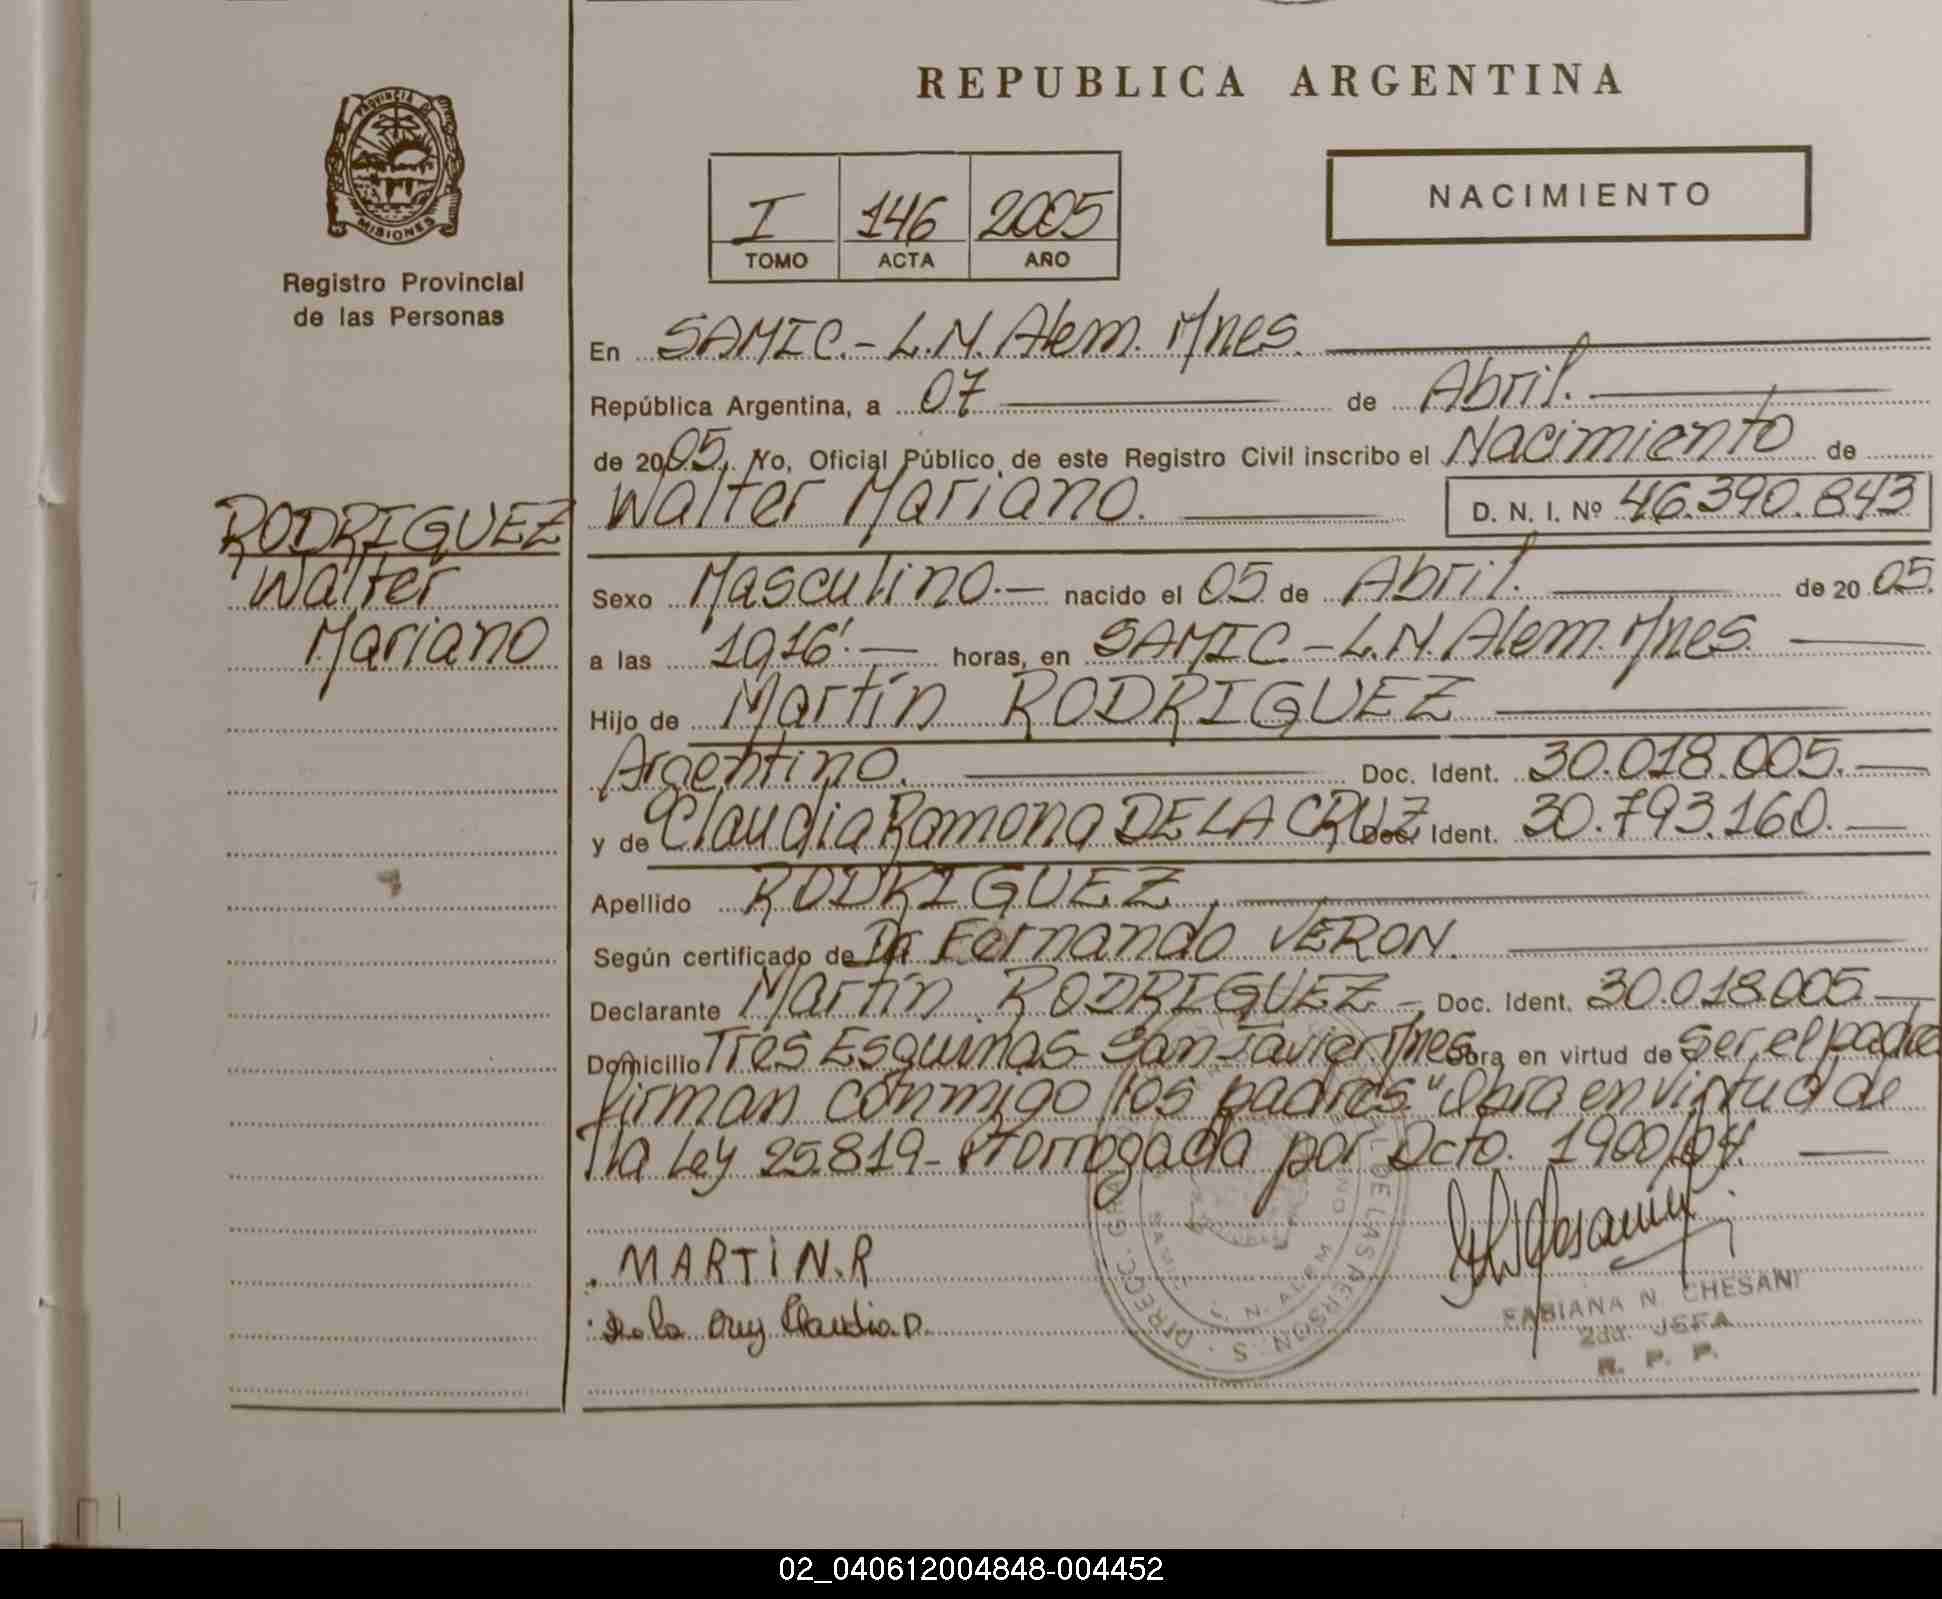 REPUBLICA ARGENTINA
PROVINCIA DE
MISIONES
Registro Provincial
de las Personas
RODRIGUEZ
Walter
Mariano
I 146 2005
TOMO ACTA AÑO
NACIMIENTO
En SAMIC.- L.N. Alem. Mnes.
República Argentina, a 07 de Abril.
de 2005. Yo, Oficial Público de este Registro Civil inscribo el Nacimiento de
Walter Mariano. D. N. I. Nº 46.390.843
Sexo Masculino.- nacido el 05 de Abril. de 20 05.
a las 1916'.- horas, en SAMIC.- L.N. Alem. Mnes.
Hijo de Martín RODRIGUEZ
Argentino. Doc. Ident. 30.018.005.-
y de Claudia Ramona DE LA CRUZ Doc. Ident. 30.793.160.-
Apellido RODRIGUEZ.
Según certificado de Dr Fernando VERON.
Declarante Martín RODRIGUEZ - Doc. Ident. 30.018.005-
Domicilio Tres Esquinas- San Javier. Mnes. obra en virtud de Ser el padre
firman conmigo los padres" Obra en virtud de
la Ley 25.819- Prorrogada por Dcto. 1900/04.
MARTIN.R
De la Cruz Claudia.
FABIANA N. CHESANI
2da. JEFA
R. P. P.
02_040612004848-004452